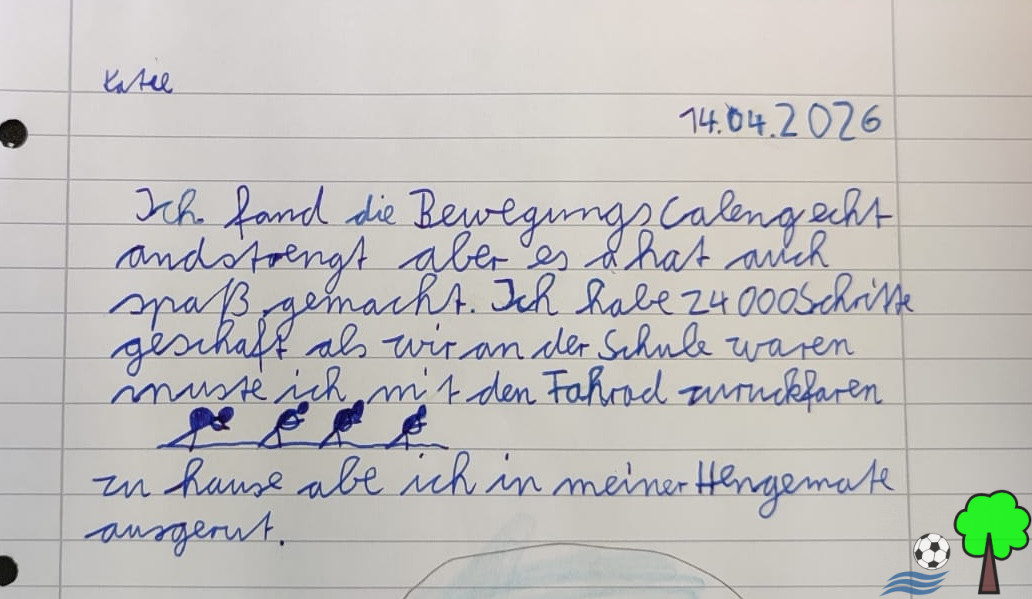 Katie
14.04.2026
Ich fand die Bewegungscaleng echt
andstrengt aber es hat auch
spaß gemacht. Ich habe 24000 Schritte
geschaft als wir an der Schule waren
muste ich mit den Fahrad zurückfaren
zu hause abe ich in meiner Hengemate
ausgerut.